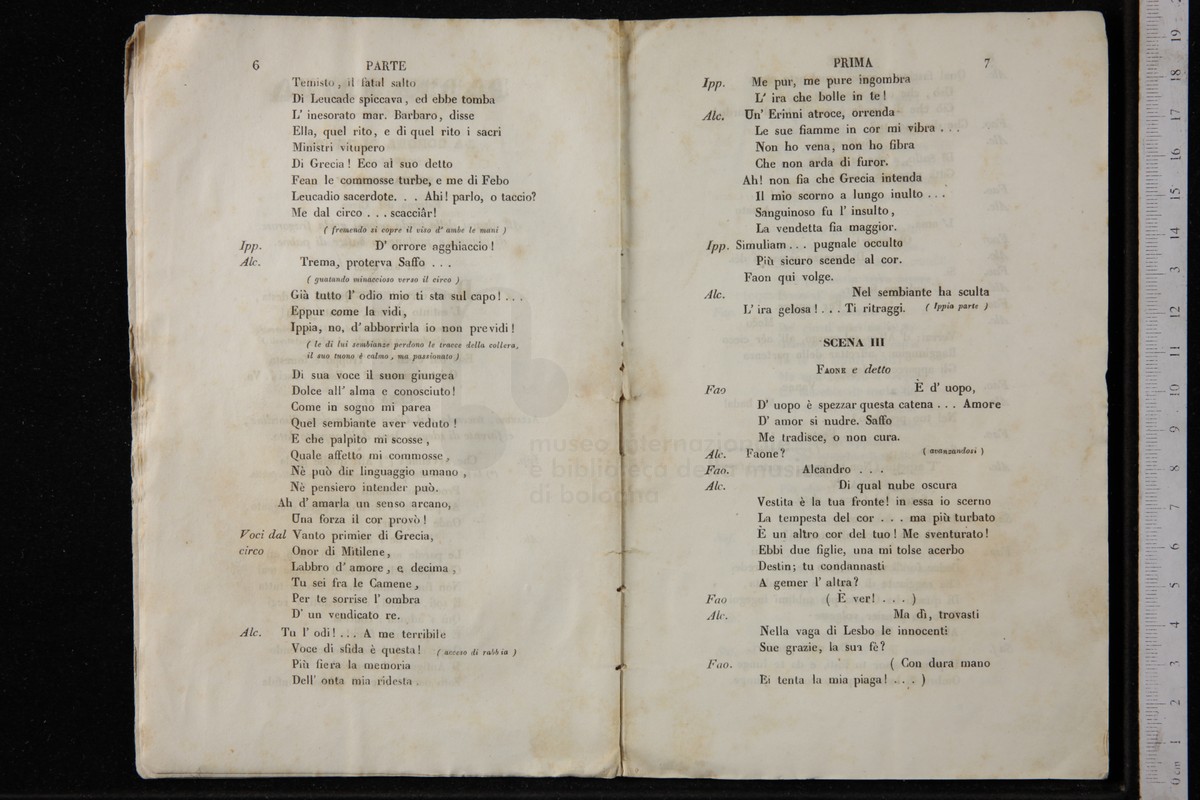 6 PARTE
Temisto, il fatal salto
Di Leucade spiccava, ed ebbe tomba
L' inesorato mar. Barbaro, disse
Ella, quel rito, e di quel rito i sacri
Ministri vitupero
Di Grecia! Eco al suo detto
Fean le commosse turbe, e me di Febo
Leucadio sacerdote. . . Ahi! parlo, o taccio?
Me dal circo . . . scacciâr!
( fremendo si copre il viso d' ambe le mani )
Ipp. D' orrore agghiaccio!
Alc. Trema, proterva Saffo . . .
( guatando minaccioso verso il circo )
Già tutto l' odio mio ti sta sul capo! . . .
Eppur come la vidi,
Ippia, no, d' abborrirla io non previdi!
( le di lui sembianze perdono le tracce della collera,
il suo tuono è calmo, ma passionato )
Di sua voce il suon giungea
Dolce all' alma e conosciuto!
Come in sogno mi parea
Quel sembiante aver veduto!
E che palpito mi scosse,
Quale affetto mi commosse,
Nè può dir linguaggio umano,
Nè pensiero intender può.
Ah d' amarla un senso arcano,
Una forza il cor provò!
Voci dal Vanto primier di Grecia,
circo Onor di Mitilene,
Labbro d' amore, e decima,
Tu sei fra le Camene,
Per te sorrise l' ombra
D' un vendicato re.
Alc. Tu l' odi! ... A me terribile
Voce di sfida è questa! ( acceso di rabbia )
Più fiera la memoria
Dell' onta mia ridesta.
PRIMA 7
Ipp. Me pur, me pure ingombra
L' ira che bolle in te!
Alc. Un' Erinni atroce, orrenda
Le sue fiamme in cor mi vibra . . .
Non ho vena, non ho fibra
Che non arda di furor.
Ah! non fia che Grecia intenda
Il mio scorno a lungo inulto . . .
Sanguinoso fu l' insulto,
La vendetta fia maggior.
Ipp. Simuliam . . . pugnale occulto
Più sicuro scende al cor.
Faon qui volge.
Alc. Nel sembiante ha sculta
L' ira gelosa! . . . Ti ritraggi. ( Ippia parte )
SCENA III
FAONE e detto
Fao È d' uopo,
D' uopo è spezzar questa catena . . . Amore
D' amor si nudre. Saffo
Me tradisce, o non cura.
Alc. Faone? ( avanzandosi )
Fao. Alcandro . . .
Alc. Di qual nube oscura
Vestita è la tua fronte! in essa io scerno
La tempesta del cor . . . ma più turbato
È un altro cor del tuo! Me sventurato!
Ebbi due figlie, una mi tolse acerbo
Destin; tu condannasti
A gemer l' altra?
Fao ( È ver! . . . )
Alc. Ma dì, trovasti
Nella vaga di Lesbo le innocenti
Sue grazie, la sua fè?
Fao. ( Con dura mano
Ei tenta la mia piaga! . . . )
museo internazionale
e biblioteca della musica
di bologna
0 cm 1 2 3 4 5 6 7 8 9 10 11 12 13 14 15 16 17 18 19